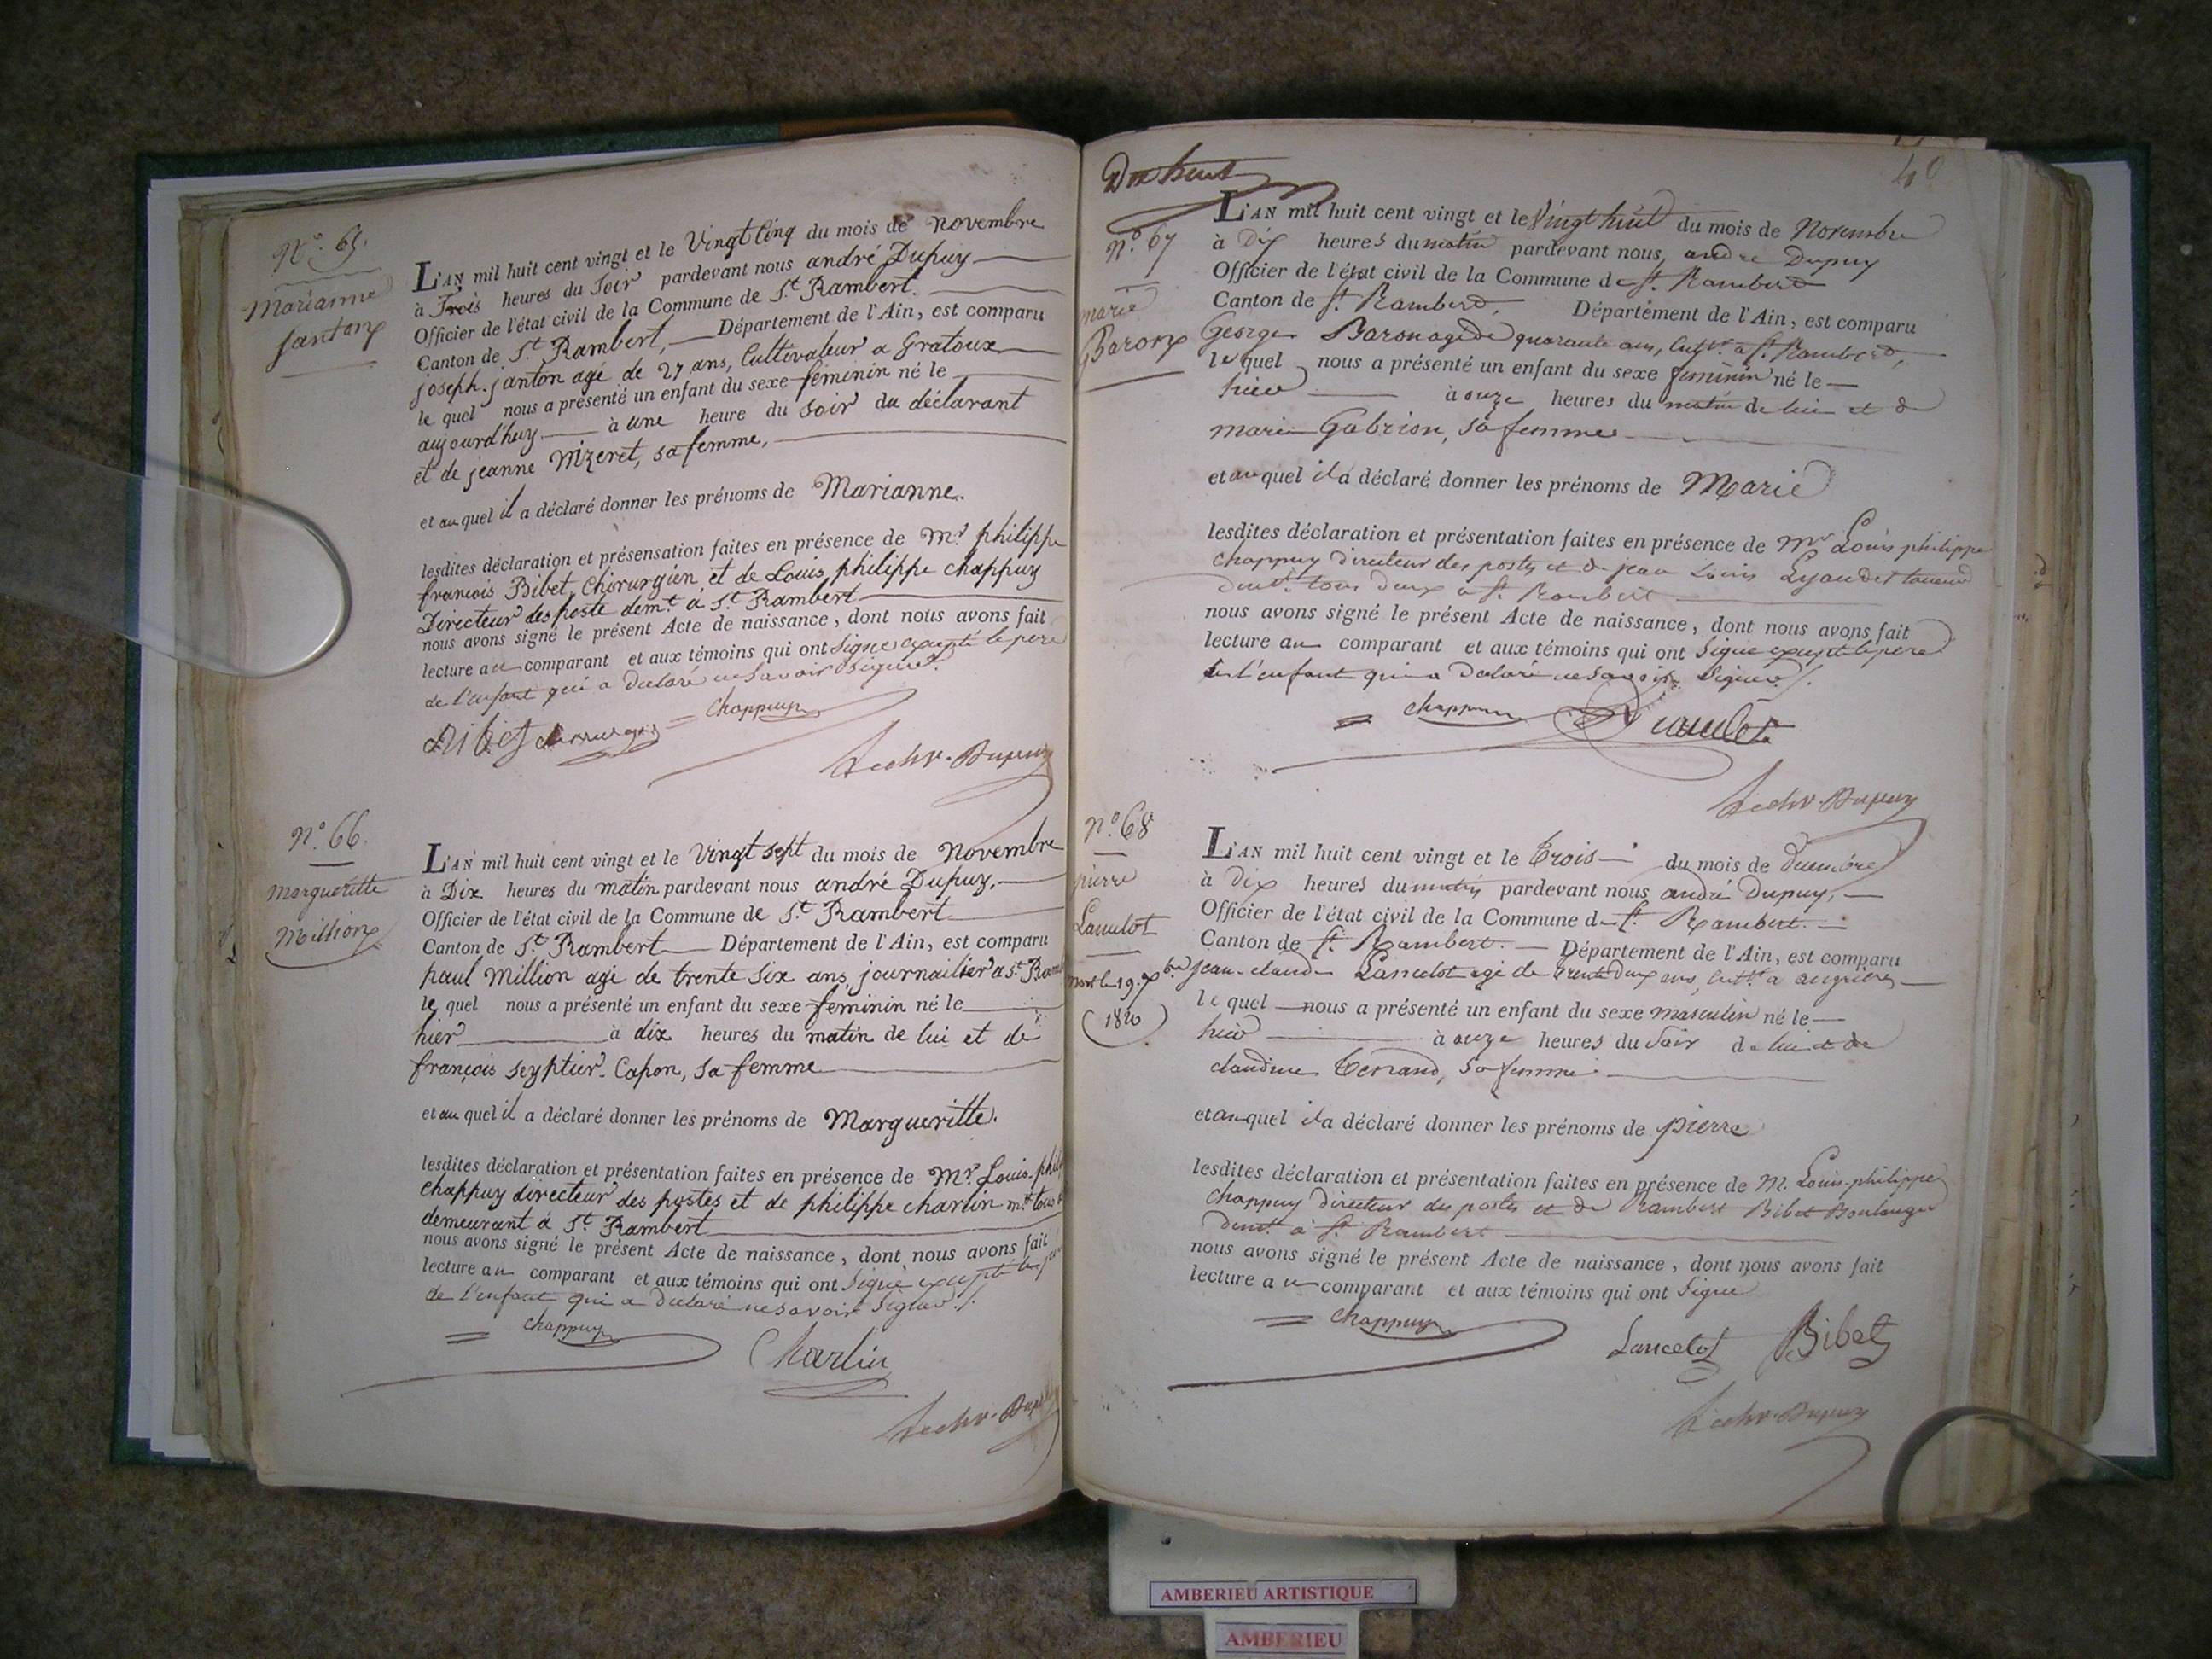 N.° 65.
Marianne
Janton
L'AN mil huit cent vingt et le Vingt Cinq du mois de novembre
à Trois heures du Soir pardevant nous andré Dupuy
Officier de l'état civil de la Commune de S.t Rambert.
Canton de S.t Rambert, Département de l'Ain, est comparu
joseph janton agé de 27 ans, Cultivateur a Gratoux
le quel nous a présenté un enfant du sexe féminin né le
aujourd'huy à une heure du soir du déclarant
et de jeanne Nizeret, sa femme,
et au quel il a déclaré donner les prénoms de Marianne.
lesdites déclaration et présensation faites en présence de Mr. philippe
françois Bibet, Chirurgien et de Louis philippe chappuy
Directeur des poste demt. à S.t Rambert
nous avons signé le présent Acte de naissance, dont nous avons fait
lecture au comparant et aux témoins qui ont Signé excepté le pere
de l'enfant qui a declaré ne savoir Signer.
Bibet chirurgien = Chappuy
Dupuy
N.° 66.
Margueritte
Million
L'AN mil huit cent vingt et le Vingt sept du mois de Novembre
à Dix heures du matin pardevant nous andré Dupuy.
Officier de l'état civil de la Commune de S.t Rambert
Canton de S.t Rambert Département de l'Ain, est comparu
paul Million agé de trente Six ans, journailier a St. Ramb
le quel nous a présenté un enfant du sexe feminin né le
hier à dix heures du matin de lui et de
françois seyptier-Capon, sa femme
et au quel il a déclaré donner les prénoms de Margueritte.
lesdites déclaration et présentation faites en présence de Mr. Louis-phil
chappuy directeur des postes et de philippe charlin md. tous
demeurant à S.t Rambert
nous avons signé le présent Acte de naissance, dont nous avons fait
lecture au comparant et aux témoins qui ont Signé excepté le
de l'enfant qui a declaré ne savoir Signer ./.
= chappuy
Charlin
Dupuy
Dix huit
40
N.° 67
marie
Baron
L'AN mil huit cent vingt et le Vingt huit du mois de Novembre
à Dix heures du matin pardevant nous, andre Dupuy
Officier de l'état civil de la Commune de St. Rambert
Canton de St. Rambert, Département de l'Ain, est comparu
George Baron agé de quarante ans, cultr. a St. Rambert,
le quel nous a présenté un enfant du sexe feminin né le
hier à onze heures du matin de lui et de
marie Gabrion, sa femme
et au quel il a déclaré donner les prénoms de Marie
lesdites déclaration et présentation faites en présence de Mr Louis philippe
chappuy directeur des postes et de jean Louis
demt. tous deux a St. Rambert
nous avons signé le présent Acte de naissance, dont nous avons fait
lecture au comparant et aux témoins qui ont Signé excepté le pere
de l'enfant qui a declaré ne savoir Signer ./.
= chappuy
Dupuy
N.° 68
pierre
Lancelot
mort le 19. Xbre
(1820)
L'AN mil huit cent vingt et le trois du mois de decembre
à dix heures du matin pardevant nous andré Dupuy,
Officier de l'état civil de la Commune de St. Rambert.
Canton de St. Rambert. Département de l'Ain, est comparu
jean-claude Lancelot agé de trente deux ans, cultr. a angrieres
le quel nous a présenté un enfant du sexe masculin né le
hier à onze heures du Soir de lui et de
claudine Tenand, sa femme
et au quel il a déclaré donner les prénoms de pierre
lesdites déclaration et présentation faites en présence de M. Louis-philippe
chappuy directeur des postes et de Rambert Bibet Boulanger
demt. à St. Rambert
nous avons signé le présent Acte de naissance, dont nous avons fait
lecture au comparant et aux témoins qui ont Signé
= chappuy
Lancelot Bibet
Dupuy
AMBERIEU ARTISTIQUE
AMBERIEU